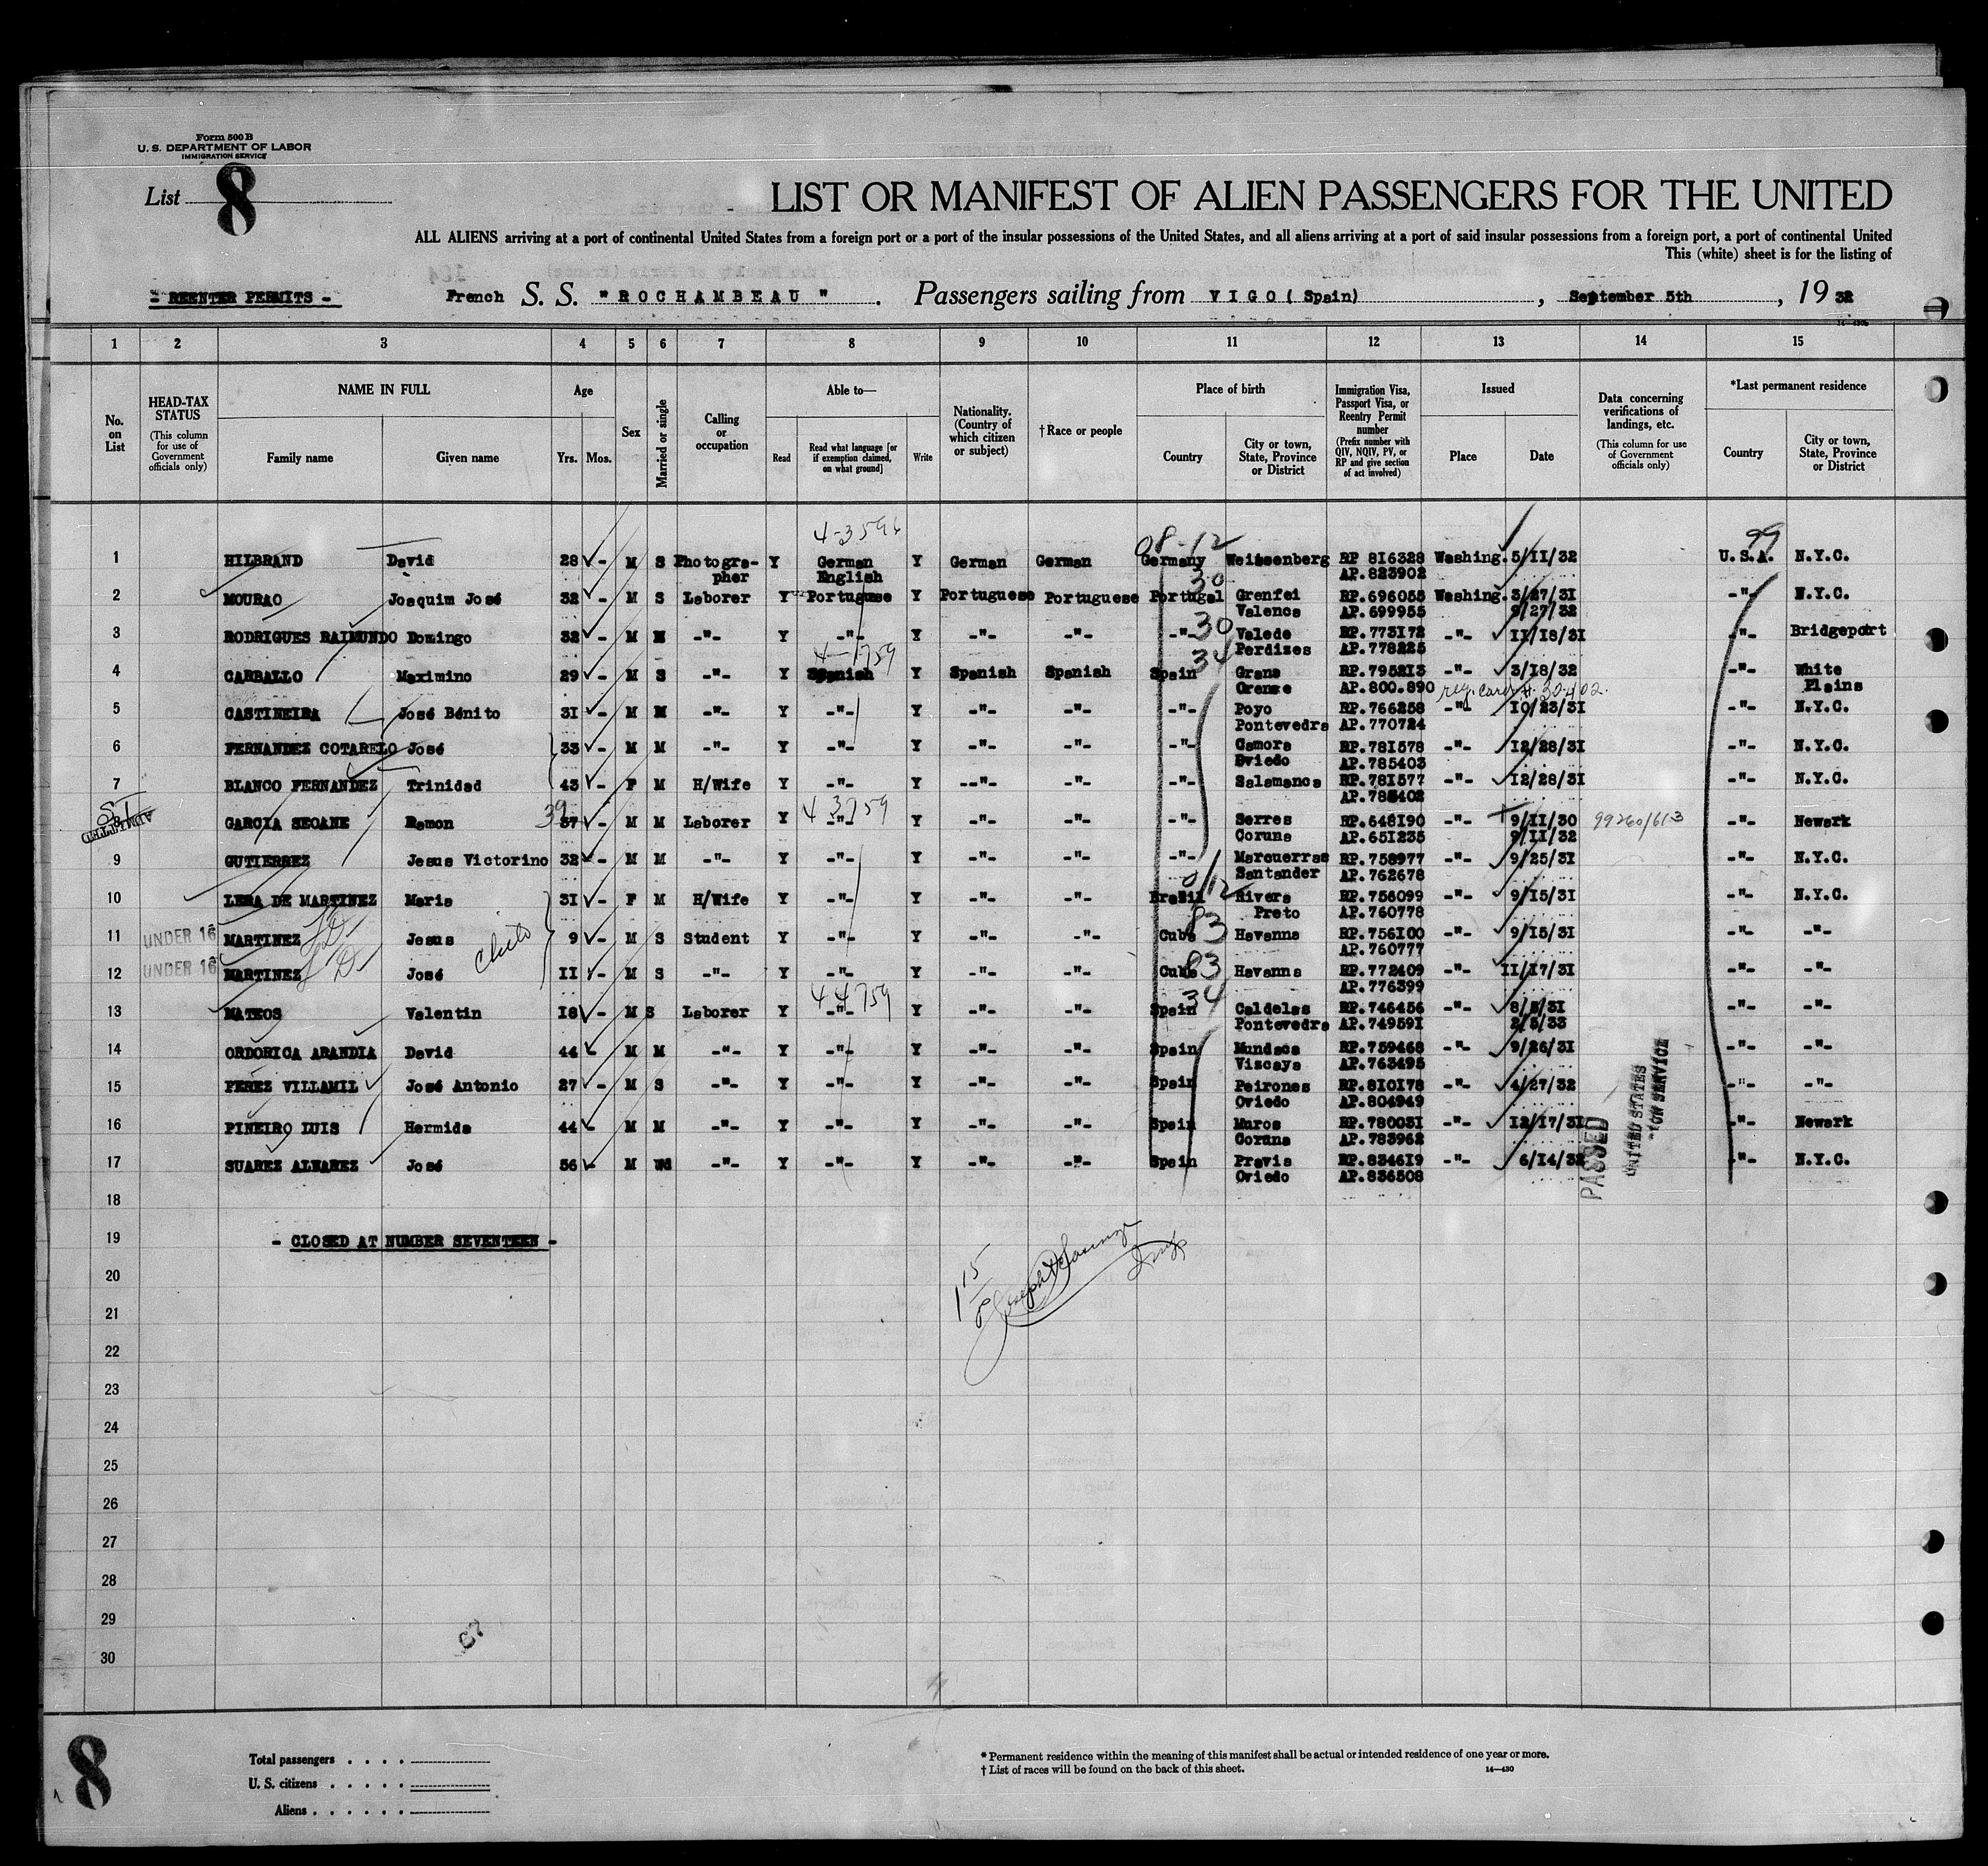 Form 500 B
U. S. DEPARTMENT OF LABOR
IMMIGRATION SERVICE
List 8
LIST OR MANIFEST OF ALIEN PASSENGERS FOR THE UNITED
ALL ALIENS arriving at a port of continental United States from a foreign port or a port of the insular possessions of the United States, and all aliens arriving at a port of said insular possessions from a foreign port, a port of continental United
This (white) sheet is for the listing of
- REENTER PERMITS - French S. S. "ROCHAMBEAU" . Passengers sailing from VIGO (Spain) , September 5th , 19 32
14—430b
1 2 3 4 5 6 7 8 9 10 11 12 13 14 15
No. on List
HEAD-TAX STATUS (This column for use of Government officials only)
NAME IN FULL Family name Given name
Age Yrs. Mos.
Sex
Married or single
Calling or occupation
Able to— Read Read what language [or if exemption claimed, on what ground] Write
Nationality. (Country of which citizen or subject)
† Race or people
Place of birth Country City or town, State, Province or District
Immigration Visa, Passport Visa, or Reentry Permit number (Prefix number with QIV, NQIV, PV, or RP and give section of act involved)
Issued Place Date
Data concerning verifications of landings, etc. (This column for use of Government officials only)
*Last permanent residence Country City or town, State, Province or District
4-3596 08-12 99
1 HILBRAND David 28 - M S Photogra- Y German Y German German Germany Weissenberg RP 816328 Washing. 5/11/32 U.S.A. N.Y.C.
pher English AP.823902
30
2 MOURAO Joaquim José 32 - M S Laborer Y Portuguese Y Portuguese Portuguese Portugal Grenfei RP.696055 Washing. 3/27/31 -"- N.Y.C.
Valenca AP.699955 9/27/32
3 RODRIGUES RAIMUNDO Domingo 32 - M M -"- Y -"- Y -"- -"- -"- 30 Valede RP.773172 -"- 11/18/31 -"- Bridgeport
4-1759 34 Perdizes AP.778225
4 CARBALLO Maximino 29 - M S -"- Y Spanish Y Spanish Spanish Spain Grana RP.795213 -"- 3/18/32 -"- White
Orense AP.800.890 reg. Card # 30402. Plains
5 CASTINEIRA José Bénito 31 - M M -"- Y -"- Y -"- -"- -"- Poyo RP.766258 -"- 10/23/31 -"- N.Y.C.
Pontevedra AP.770724
6 FERNANDEZ COTARELO José 33 - M M -"- Y -"- Y -"- -"- -"- Camora RP.781578 -"- 12/28/31 -"- N.Y.C.
Oviedo AP.785403
7 BLANCO FERNANDEZ Trinidad 43 - F M H/Wife Y -"- Y --"- -"- -"- Salamanca RP.781577 -"- 12/28/31 -"- N.Y.C.
AP.785402
SI ADMITTED 39 4 3759
8 GARCIA SEOANE Ramon 37 - M M Laborer Y -"- Y -"- -"- -"- Serres RP.648190 -"- 9/11/30 99260/613 -"- Newark
Coruna AP.651235 9/11/32
9 GUTIERREZ Jesus Victorino 32 - M M -"- Y -"- Y -"- -"- -"- Marcuerras RP.758977 -"- 9/25/31 -"- N.Y.C.
Santander AP.762678
10 LERA DE MARTINEZ Maria 31 - F M H/Wife Y -"- Y -"- -"- Brazil Rivera RP.756099 -"- 9/15/31 -"- N.Y.C.
Preto AP.760778
11 UNDER 16 MARTINEZ Jesus 9 - M S Student Y -"- Y -"- -"- Cuba 83 Havanna RP.756100 -"- 9/15/31 -"- -"-
AP.760777
12 UNDER 16 MARTINEZ José 11 - M S -"- Y -"- Y -"- -"- Cuba 83 Havanna RP.772409 -"- 11/17/31 -"- -"-
4 4759 34 AP.776399
13 MATEOS Valentin 18 - M S Laborer Y -"- Y -"- -"- Spain Caldelas RP.746456 -"- 8/5/31 -"- -"-
Pontevedra AP.749591 2/5/33
14 ORDORICA ARANDIA David 44 - M M -"- Y -"- Y -"- -"- Spain Mundaca RP.759468 -"- 9/26/31 -"- -"-
Viscaya AP.763495
15 PEREZ VILLAMIL José Antonio 27 - M S -"- Y -"- Y -"- -"- Spain Peirones RP.810178 -"- 4/27/32 -"- -"-
Oviedo AP.804949
16 PINEIRO LUIS Hermida 44 - M M -"- Y -"- Y -"- -"- Spain Muros RP.780031 -"- 12/17/31 -"- Newark
Coruna AP.783962
17 SUAREZ ALVAREZ José 56 - M Wd -"- Y -"- Y -"- -"- Spain Pravia RP.834619 -"- 6/14/32 -"- N.Y.C.
Oviedo AP.836508
PASSED
UNITED STATES
ION SERVICE
18
19 - CLOSED AT NUMBER SEVENTEEN -
20
21
22
23
24
25
26
27
28
29
30
8
Total passengers . . . .
U. S. citizens . . . . .
Aliens . . . . . .
* Permanent residence within the meaning of this manifest shall be actual or intended residence of one year or more.
† List of races will be found on the back of this sheet.
14—430